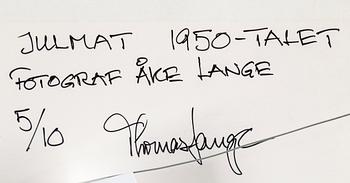 JULMAT 1950-TALET
FOTOGRAF ÅKE LANGE
5/10 Thomas Lange